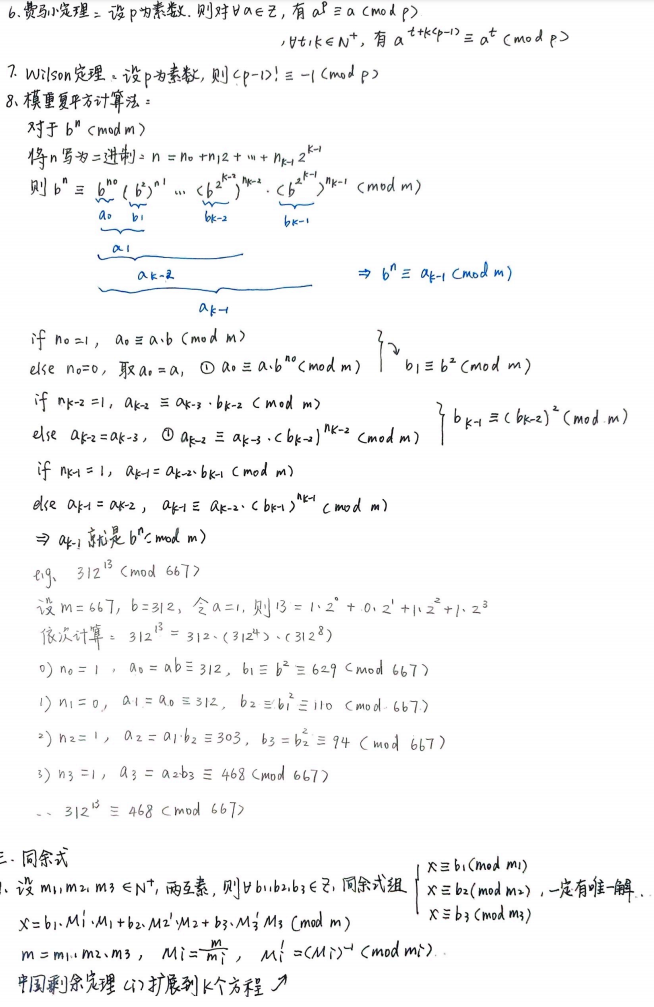 6、费马小定理：设p为素数.则对∀a∈Z，有 a^p ≡ a (mod p)
，∀t,k∈N⁺，有 a^{t+k(p-1)} ≡ a^t (mod p)
7. Wilson定理：设p为素数，则(p-1)! ≡ -1 (mod p)
8、模重复平方计算法：
对于 b^n (mod m)
将n写为二进制：n = n₀ + n₁2 + … + n_{k-1} 2^{k-1}
则 b^n ≡ b^{n₀} (b²)^{n₁} … (b^{2^{k-2}})^{n_{k-2}} · (b^{2^{k-1}})^{n_{k-1}} (mod m)
a₀ b₁ b_{k-2} b_{k-1}
a₁
a_{k-2} ⇒ b^n ≡ a_{k-1} (mod m)
a_{k-1}
if n₀=1，a₀ ≡ a·b (mod m)
else n₀=0，取a₀=a，① a₀ ≡ a·b^{n₀} (mod m) } b₁ ≡ b² (mod m)
if n_{k-2}=1，a_{k-2} ≡ a_{k-3}·b_{k-2} (mod m)
else a_{k-2}=a_{k-3}，① a_{k-2} ≡ a_{k-3}·(b_{k-2})^{n_{k-2}} (mod m) } b_{k-1} ≡ (b_{k-2})² (mod m)
if n_{k-1}=1，a_{k-1}=a_{k-2}·b_{k-1} (mod m)
else a_{k-1}=a_{k-2}，a_{k-1} ≡ a_{k-2}·(b_{k-1})^{n_{k-1}} (mod m)
⇒ a_{k-1} 就是 b^n (mod m)
e.g、 312^{13} (mod 667)
设 m=667，b=312，令a=1，则13 = 1·2⁰ + 0·2¹ + 1·2² + 1·2³
依次计算：312^{13} = 312·(312⁴)·(312⁸)
0) n₀=1，a₀=ab≡312，b₁≡b²≡629 (mod 667)
1) n₁=0，a₁=a₀≡312，b₂≡b₁²≡110 (mod 667)
2) n₂=1，a₂=a₁·b₂≡303，b₃=b₂²≡94 (mod 667)
3) n₃=1，a₃=a₂b₃≡468 (mod 667)
∴ 312^{13} ≡ 468 (mod 667)
三、同余式
1、设 m₁,m₂,m₃∈N⁺，两互素，则∀b₁,b₂,b₃∈Z，同余式组 { x≡b₁(mod m₁)
x≡b₂(mod m₂)，一定有唯一解
x≡b₃(mod m₃)
x=b₁·M₁'·M₁+b₂·M₂'·M₂+b₃·M₃'M₃ (mod m)
m=m₁·m₂·m₃，Mi=m/mi，Mi'=(Mi)⁻¹ (mod mi)
中国剩余定理 (1)扩展到k个方程 ↗